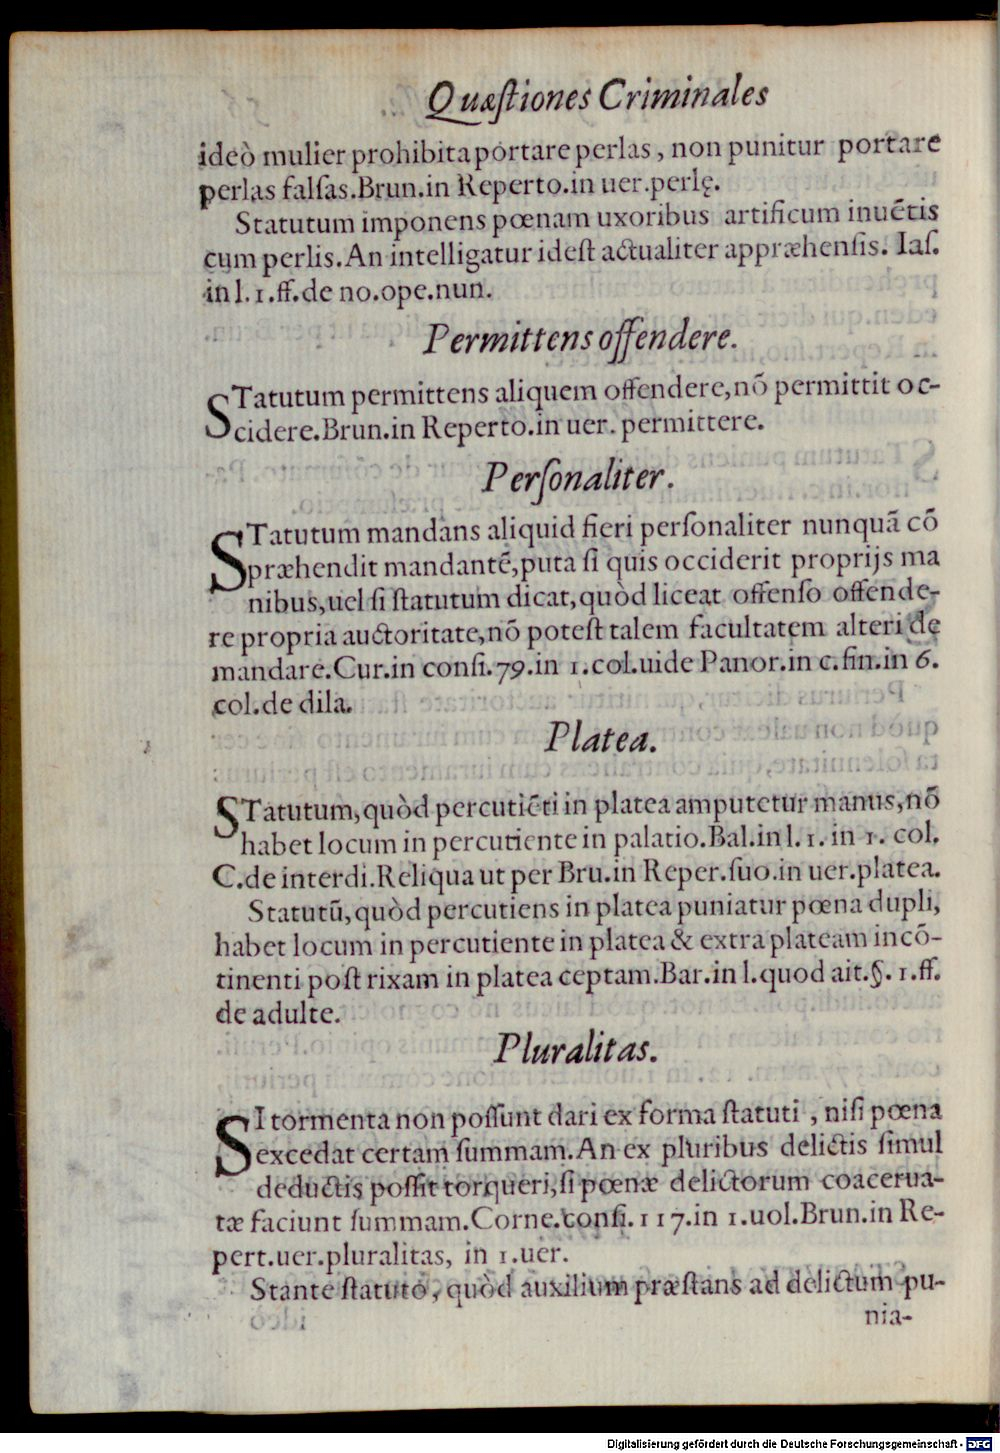 Quæſtiones Criminales
ideò mulier prohibita portare perlas, non punitur portare
perlas falſas. Brun. in Reperto. in uer. perlę.
Statutum imponens pœnam uxoribus artificum inuẽtis
cum perlis. An intelligatur ideſt actualiter appræhenſis. Iaſ.
in l. 1. ff. de no. ope. nun.
Permittens offendere.
STatutum permittens aliquem offendere, nõ permittit oc-
cidere. Brun. in Reperto. in uer. permittere.
Perſonaliter.
STatutum mandans aliquid fieri perſonaliter nunquã cõ
præhendit mandantẽ, puta ſi quis occiderit proprijs ma
nibus, uel ſi ſtatutum dicat, quòd liceat offenſo offende-
re propria auctoritate, nõ poteſt talem facultatem alteri de
mandare. Cur. in conſi. 79. in 1. col. uide Panor. in c. fin. in 6.
col. de dila.
Platea.
STatutum, quòd percutiẽti in platea amputetur manus, nõ
habet locum in percutiente in palatio. Bal. in l. 1. in 1. col.
C. de interdi. Reliqua ut per Bru. in Reper. ſuo. in uer. platea.
Statutũ, quòd percutiens in platea puniatur pœna dupli,
habet locum in percutiente in platea & extra plateam incõ-
tinenti poſt rixam in platea ceptam. Bar. in l. quod ait. §. 1. ff.
de adulte.
Pluralitas.
SI tormenta non poſſunt dari ex forma ſtatuti, niſi pœna
excedat certam ſummam. An ex pluribus delictis ſimul
deductis poſſit torqueri, ſi pœnæ delictorum coacerua-
tæ faciunt ſummam. Corne. conſi. 117. in 1. uol. Brun. in Re-
pert. uer. pluralitas, in 1. uer.
Stante ſtatuto, quòd auxilium præſtans ad delictum pu-
nia-
Digitalisierung gefördert durch die Deutsche Forschungsgemeinschaft - DFG